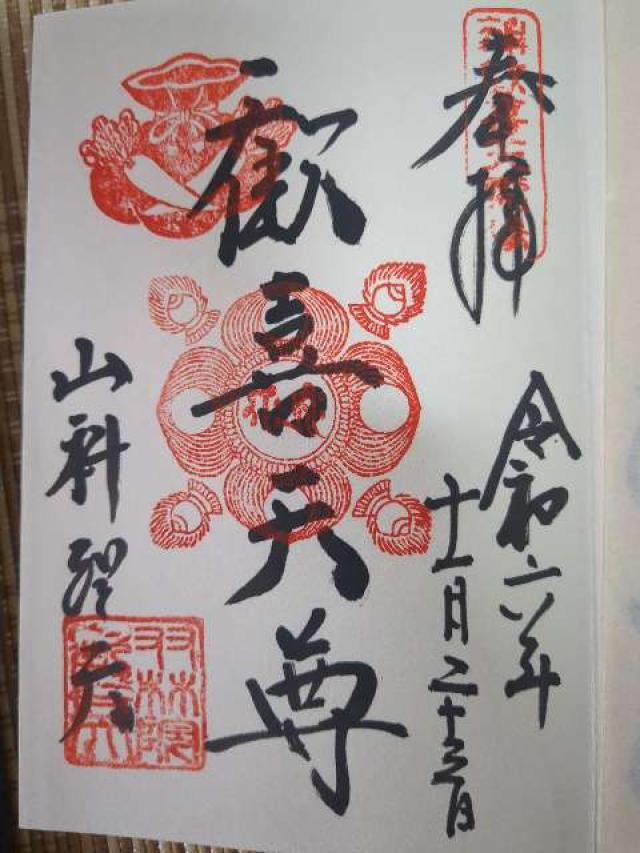 奉拝
令和六年
十一月二十三日
歓喜天尊
山科聖天
双林院